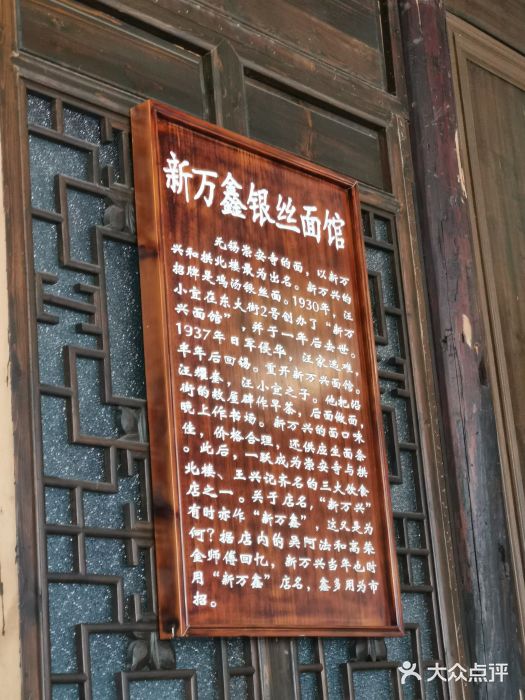 新万鑫银丝面馆
无锡崇安寺的面，以新万
兴和拱北楼最为出名。新万兴的
招牌是鸡汤银丝面。1930年，汪
小宜在东大街2号创办了“新万
兴面馆”，并于一年后去世。
1937年日军侵华，汪家逃难，
半年后回锡。重开新万兴面馆。
汪耀奎，汪小宜之子。他把沿
街的故屋辟作早茶，后面做面，
晚上作书场。新万兴的面口味
佳，价格合理，还供应生面条
。此后，一跃成为崇安寺与拱
北楼、王兴记齐名的三大饮食
店之一。关于店名，“新万兴”
有时亦作“新万鑫”，这又是为
何？据店内的吴阿法和高荣
金师傅回忆，新万兴当年也时
用“新万鑫”店名，鑫多用为市
招。
大众点评